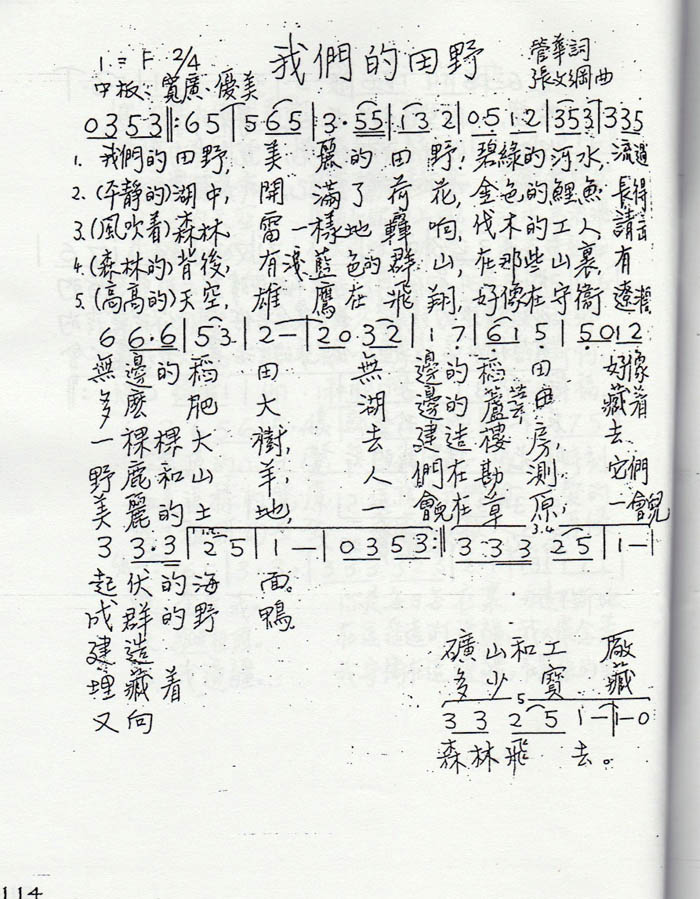 我們的田野
1 = F 2/4
管華詞
中板：寬廣·優美
張文綱曲
0 3 5 3 ‖: 6 5 | 5 6 5 | 3· 5 5 | 1 3 2 | 0 5 1 2 | 3 5 3 | 3 3 5
1. 我們的田野，美麗的田野，碧綠的河水，流過
2. (平静的)湖中，開滿了荷花，金色的鯉魚，長得
3. (風吹着)森林，雷一樣地轟响，伐木的工人，請
4. (森林的)背後，有淺藍色的群山，在那些山裏，有
5. (高高的)天空，雄鷹在飛翔，好像在守衛遼
6 6·6 | 5 3 | 2 — | 2 0 3 2 | 1 7 | 6 1 5 | 5 0 1 2
無邊的稻田 無邊的稻田 好像
多麽肥大 湖邊的蘆 藏着
一棵棵大樹， 去建造樓房， 去
野鹿和山羊， 人們在勘測， 它們
美麗的土地， 一會兒在草原， 一會兒
3 3·3 | 2 5 | 1 — | 0 3 5 3 :‖ 3 3 3 2 5 | 1 — |
3.4
起伏的海面。
成群的野鴨。
建造 礦山和工廠
埋藏着 多少寶藏
3 3 2 5 1 — | 1 — 0
5
又向 森林飛去。
114